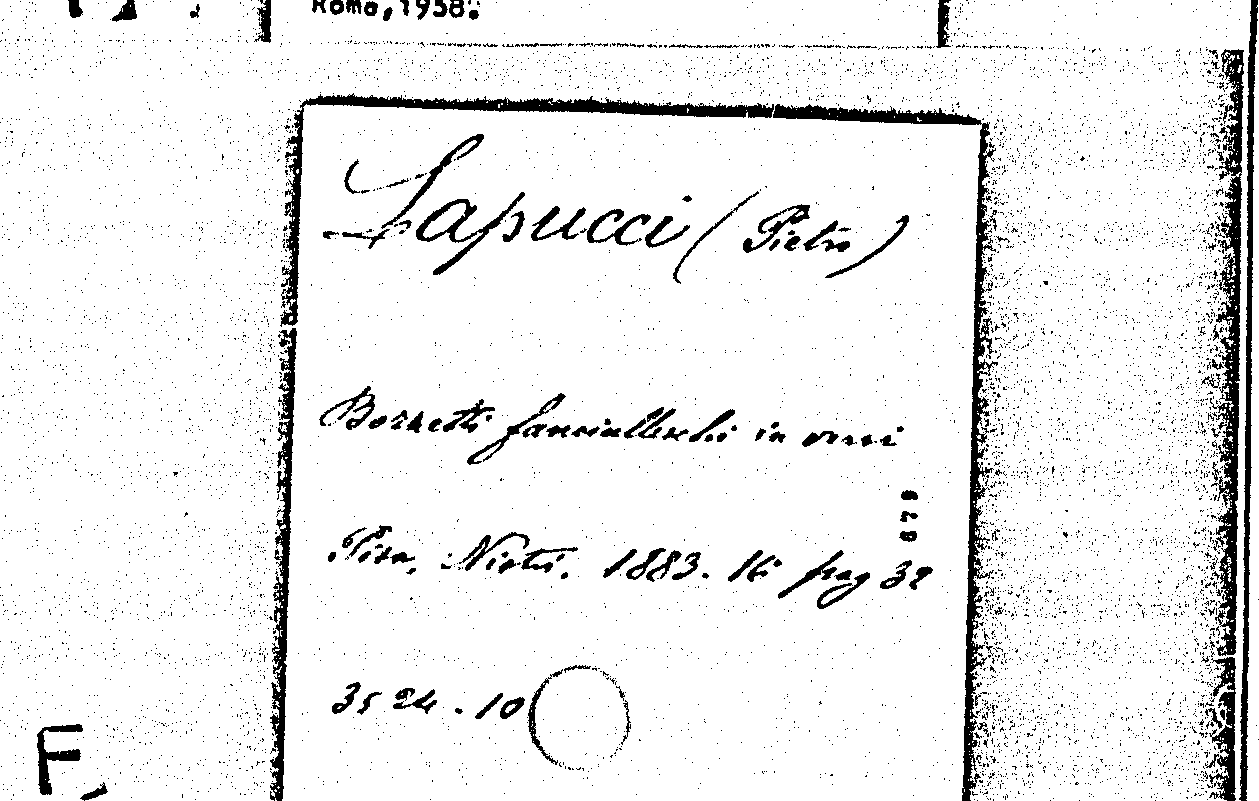 Roma,1958.
Lapucci (Pietro)
Bozzetti fanciulleschi in versi
679
Pisa, Nistri. 1883. 16° pag 32
3524.10
F